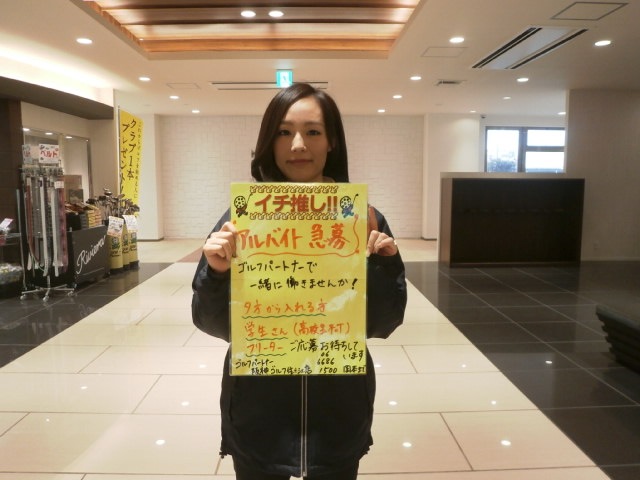 イチ推し!!
アルバイト 急募
ゴルフパートナーで
一緒に 働きませんか!
夕方から入れる方
学生さん(高校生不可)
フリーター ご応募お待ちして
います
ゴルフパートナー
阪神ゴルフ
66
6686
1500
クラブ1本
プレゼント
ベルト
Riviera